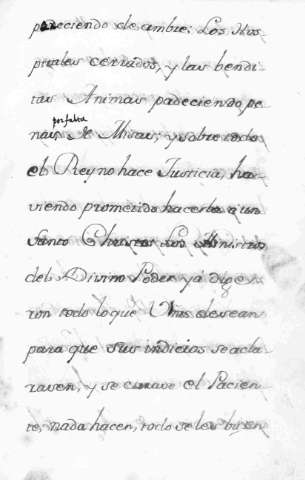 padeciendo de ambre: Los Hos
pitales cerrados, y las bendi
tas Animas padeciendo pe
por falta
nas de Misas; y sobre todo
el Reyno hace Justicia, ha
viendo prometido hacerla a un
Santo Christo: Los Ministros
del Divino Poder ya dige
ron todo lo que Vms desean
para que sus indicios se acla
rasen, y se curase el Pacien
te, nada hacen, todo se les